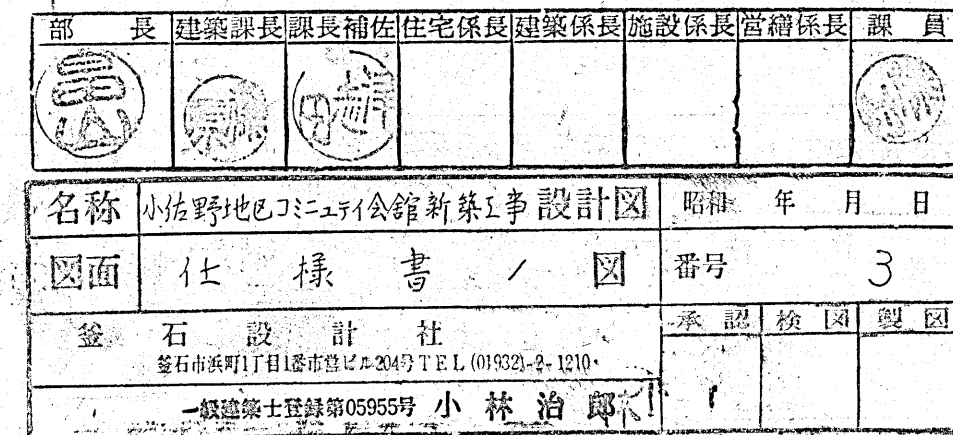 部長 建築課長 課長補佐 住宅係長 建築係長 施設係長 営繕係長 課員
名称 小佐野地区コミニュティ会舘新築工事 設計図 昭和 年 月 日
図面 仕様書 1 図 番号 3
釜石設計社 承認 検図 製図
釜石市浜町1丁目1番市営ビル204号 TEL (01932)-2-1210
一級建築士登録第05955号 小林治郎